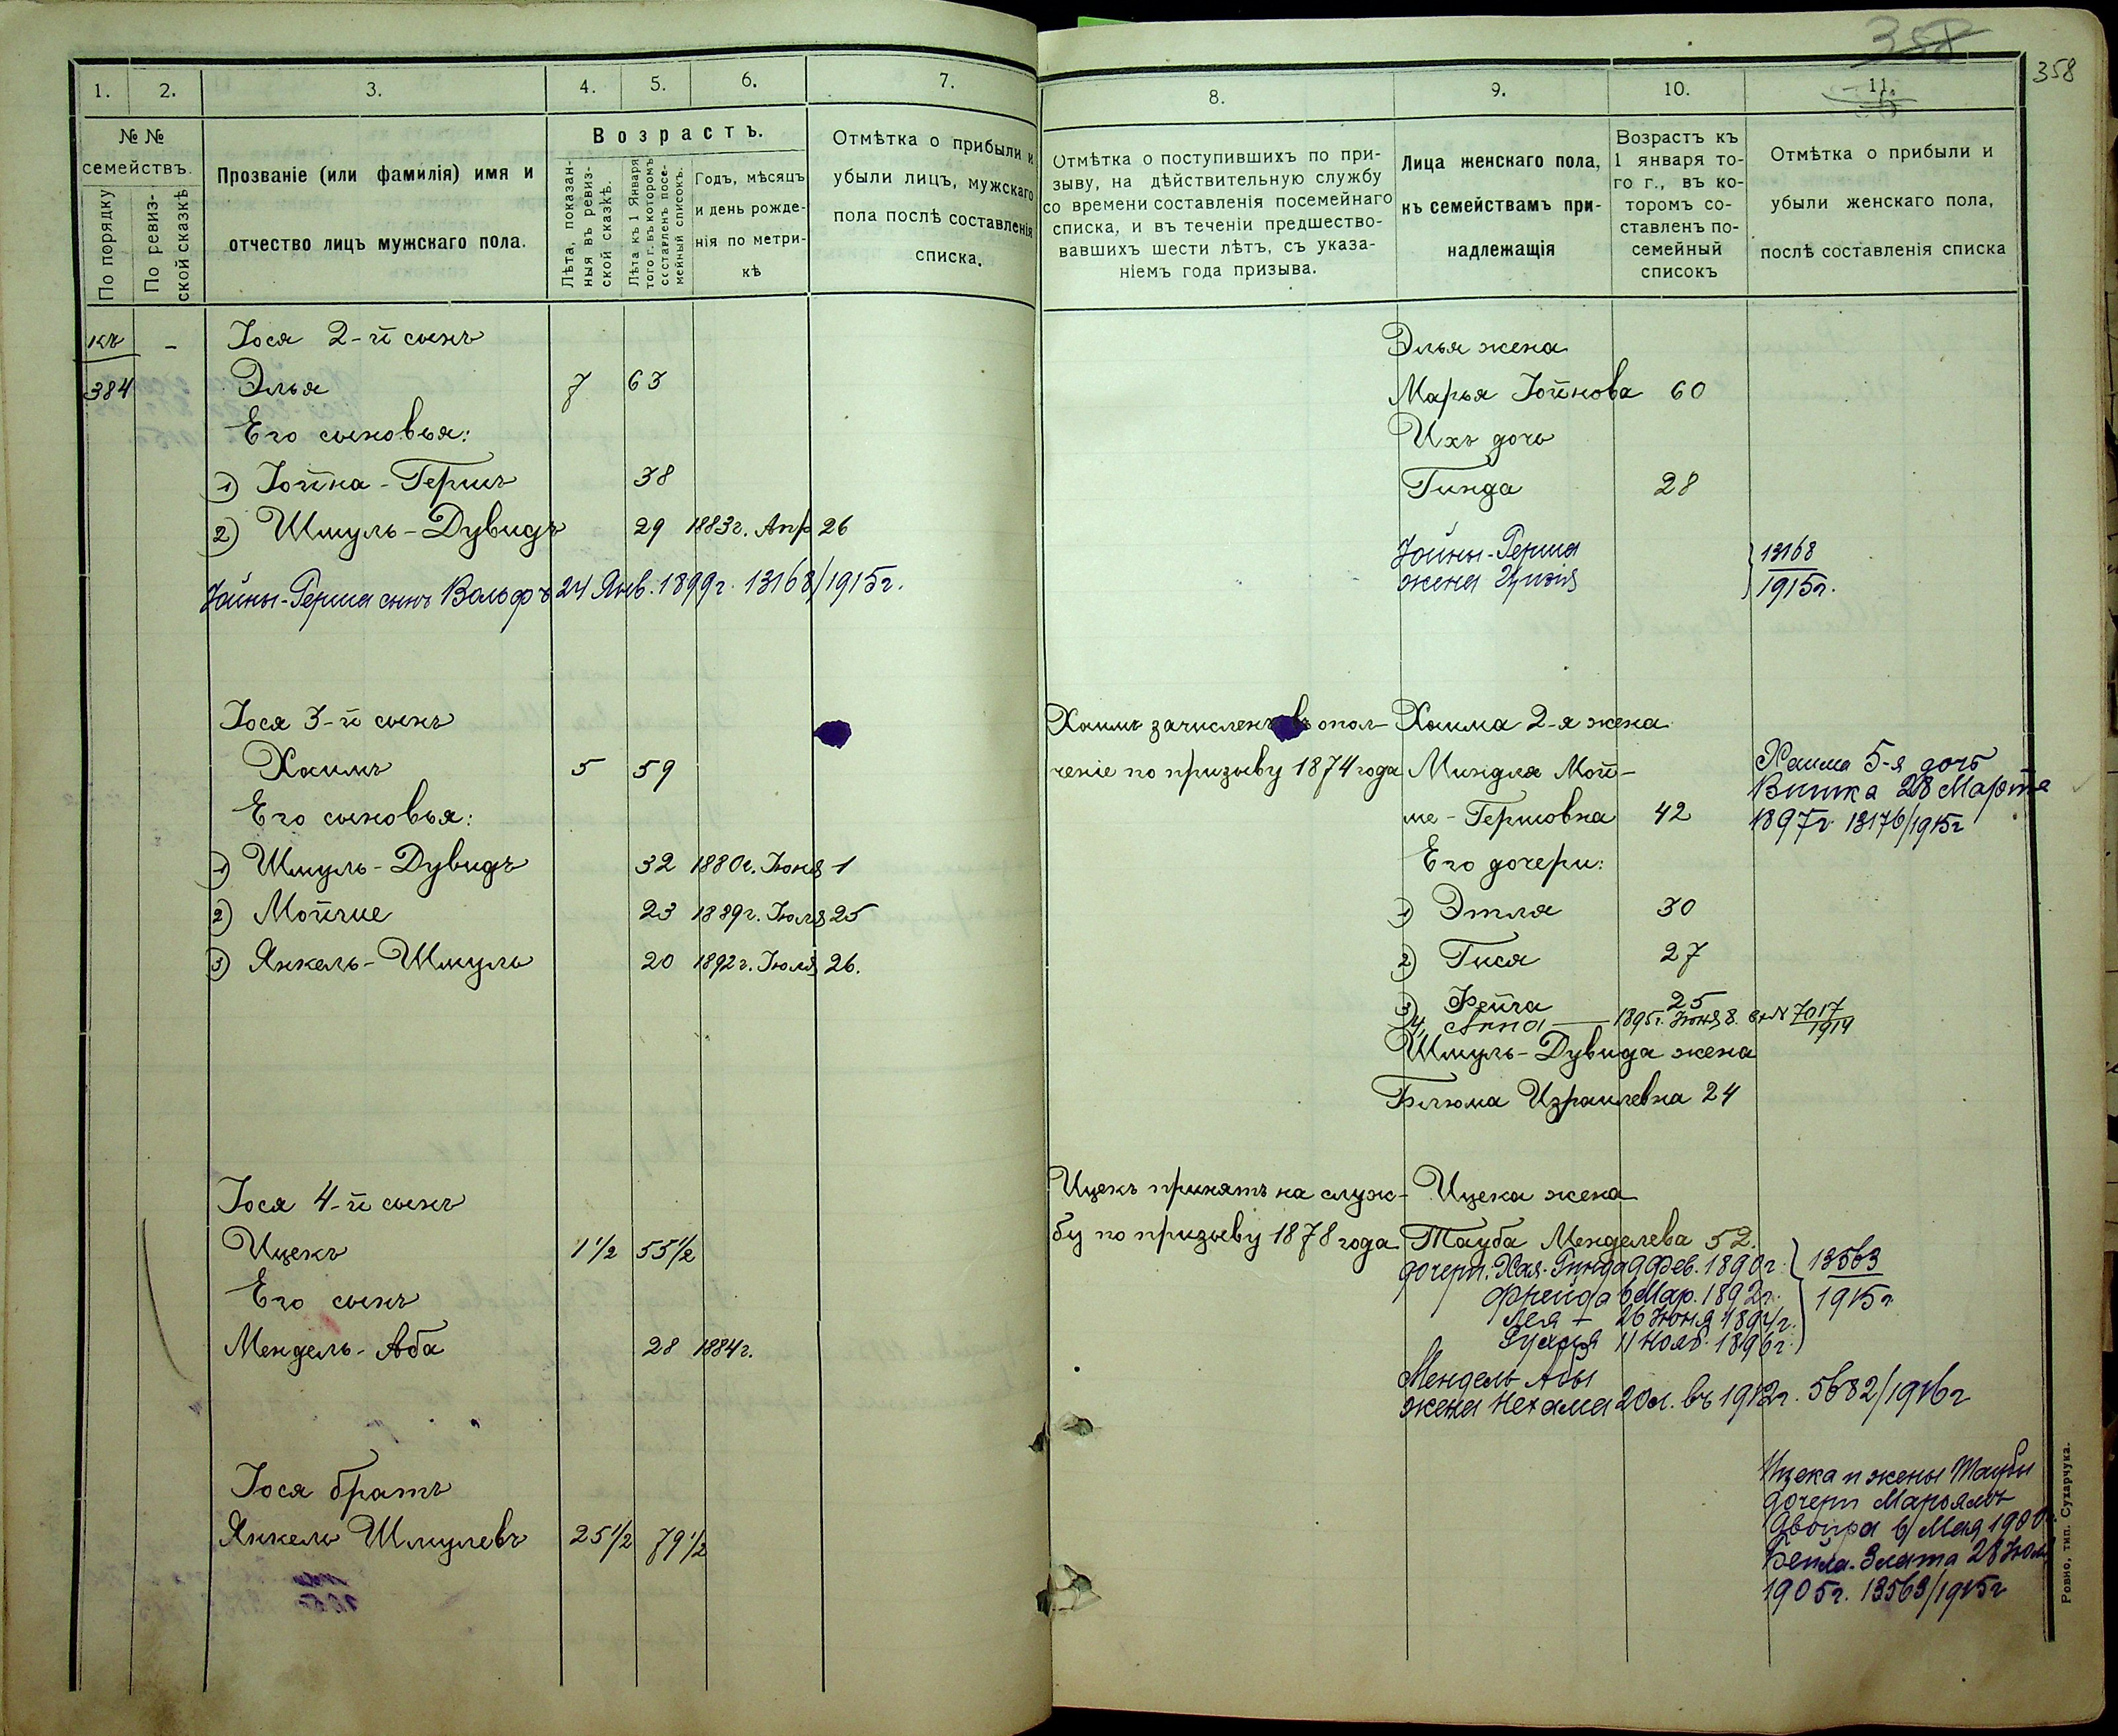 358
358
1.
2.
3.
4.
5.
6.
7.
№ №
семействъ.
По порядку
По ревиз-
ской сказкѣ
Прозваніе (или фамилія) имя и
отчество лицъ мужскаго пола.
Возрастъ.
Лѣта, показан-
ныя въ ревиз-
ской сказкѣ.
Лѣта къ 1 Января
того г. въ которомъ
составленъ посе-
мейный списокъ.
Годъ, мѣсяцъ
и день рожде-
нія по метри-
кѣ
Отмѣтка о прибыли и
убыли лицъ, мужскаго
пола послѣ составленія
списка.
къ
384
-
Іося 2-й сынъ
Элья 7 63
Его сыновья:
1) Іойна-Гершъ 38
2) Шмуль-Дувидъ 29 1883г. Апр 26
Іойны-Герша сынъ Вольфъ 24 Янв. 1899г. 13168/1915г.
Іося 3-й сынъ
Хаимъ 5 59
Его сыновья:
1) Шмуль-Дувидъ 32 1880г. Іюня 1
2) Мойше 23 1889г. Іюля 25
3) Янкель-Шмуль 20 1892г. Іюля 26.
Іося 4-й сынъ
Ицекъ 1 1/2 55 1/2
Его сынъ
Мендель-Аба 28 1884г.
Іося братъ
Янкель Шмулевъ 25 1/2 79 1/2
8.
9.
10.
11.
Отмѣтка о поступившихъ по при-
зыву, на дѣйствительную службу
со времени составленія посемейнаго
списка, и въ теченіи предшество-
вавшихъ шести лѣтъ, съ указа-
ніемъ года призыва.
Лица женскаго пола,
къ семействамъ при-
надлежащія
Возрастъ къ
1 января то-
го г., въ ко-
торомъ со-
ставленъ по-
семейный
списокъ
Отмѣтка о прибыли и
убыли женскаго пола,
послѣ составленія списка
Элья жена
Марья Іойнова 60
Ихъ дочь
Гинда 28
Іойны-Герша
жена
13168
1915г.
Хаимъ зачисленъ въ опол-
ченіе по призыву 1874 года
Хаима 2-я жена
Миндля Мой-
ше-Гершовна 42
Его дочери:
1) Этля 30
2) Гися 27
3) Фейга 25
4, Анна — 1895г. Іюня 8. вх № 7017
1914
Шмуль-Дувида жена
Блюма Израилевна 24
Хаима 5-я дочь
Витка 28 Марта
1897г 13176/1915г
Ицекъ принятъ на служ-
бу по призыву 1878 года
Ицека жена
Тауба Менделева 52.
дочери. Хая-Гинда 9 Фев. 1890г.
Фрейда 6 Мар. 1892г.
Лея + 26 Іюня 1894г.
Рухля 11 Нояб. 1896г.
13563
1915г
Мендель Абы
жена Нехама 20л. въ 1912г. 5682/1916г
Ицека и жены Таубы
дочери Марьямъ
Двойра 6 Мая 1900
Бейла-Злата 28 Іюл
1905г. 13563/1915г
Ровно, тип. Сухарчука.